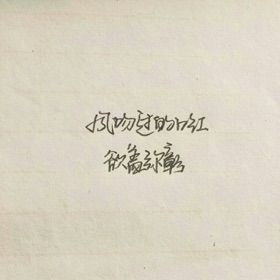 风吻过的口红
欲盖弥彰